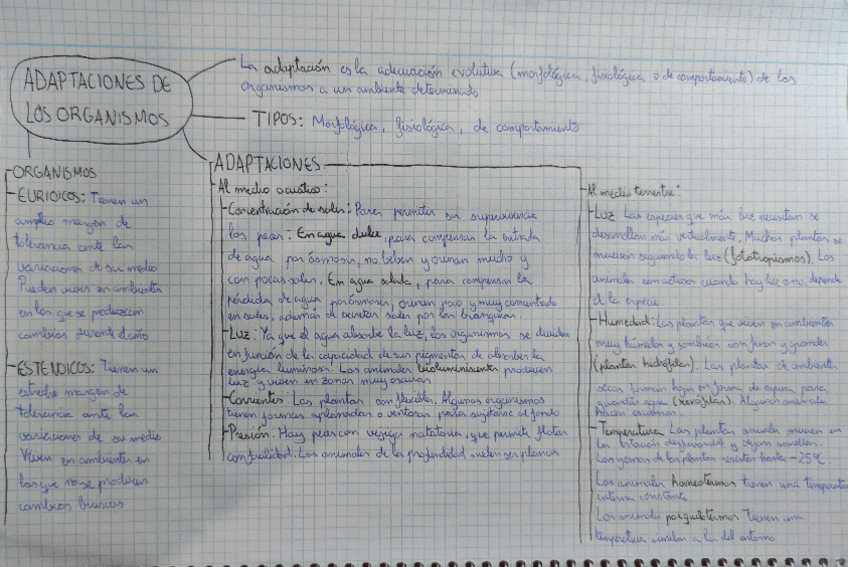 ADAPTACIONES DE
LOS ORGANISMOS
La adaptación es la adecuación evolutiva (morfológica, fisiológica o de comportamiento) de los
organismos a un ambiente determinado
TIPOS: Morfológica, fisiológica, de comportamiento
ORGANISMOS
EURIOICOS: Tienen un
amplio margen de
tolerancia ante las
variaciones de su medio
Pueden vivir en ambientes
en los que se produzcan
cambios durante el año
ESTENOICOS: Tienen un
estrecho margen de
tolerancia ante las
variaciones de su medio
Viven en ambientes en
los que no se producen
cambios bruscos
ADAPTACIONES
Al medio acuático:
Concentración de sales: Para permitir su supervivencia
los peces: En agua dulce, para compensar la entrada
de agua por ósmosis, no beben y orinan mucho y
con pocas sales. En agua salada, para compensar la
pérdida de agua por ósmosis, orinan poco y muy concentrado
en sales, además de excretar sales por las branquias.
Luz: Ya que el agua absorbe la luz, los organismos se dividen
en función de la capacidad de sus pigmentos de absorber la
energía luminosa. Los animales bioluminiscentes producen
luz y viven en zonas muy oscuras
Corrientes: Las plantas son flexibles. Algunos organismos
tienen formas aplanadas o ventosas para sujetarse al fondo
Presión: Hay peces con vejiga natatoria, que permite flotar
con facilidad. Los animales de la profundidad suelen ser planos
Al medio terrestre:
Luz Las especies que más luz necesitan se
desarrollan más verticalmente. Muchas plantas se
mueven siguiendo la luz (fototropismos). Los
animales son activos cuando hay luz o no, depende
de la especie.
Humedad: Las plantas que viven en ambientes
muy húmedos y sombríos son finas y grandes
(plantas hidrófilas). Las plantas de ambientes
secos forman hojas en forma de espina para
guardar agua (xerófilas). Algunos animales
tienen escamas.
Temperatura Las plantas anuales mueren en
la estación desfavorable y dejan semillas.
Las yemas de las plantas resisten hasta -25ºC.
Los animales homeotermos tienen una temperatura
interna constante
Los animales poiquilotermos tienen una
temperatura similar a la del entorno